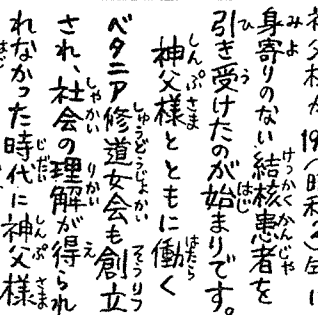 身寄りのない結核患者を
引き受けたのが始まりです。
神父様とともに働く
ベタニア修道女会も創立
され、社会の理解が得られ
れなかった時代に神父様